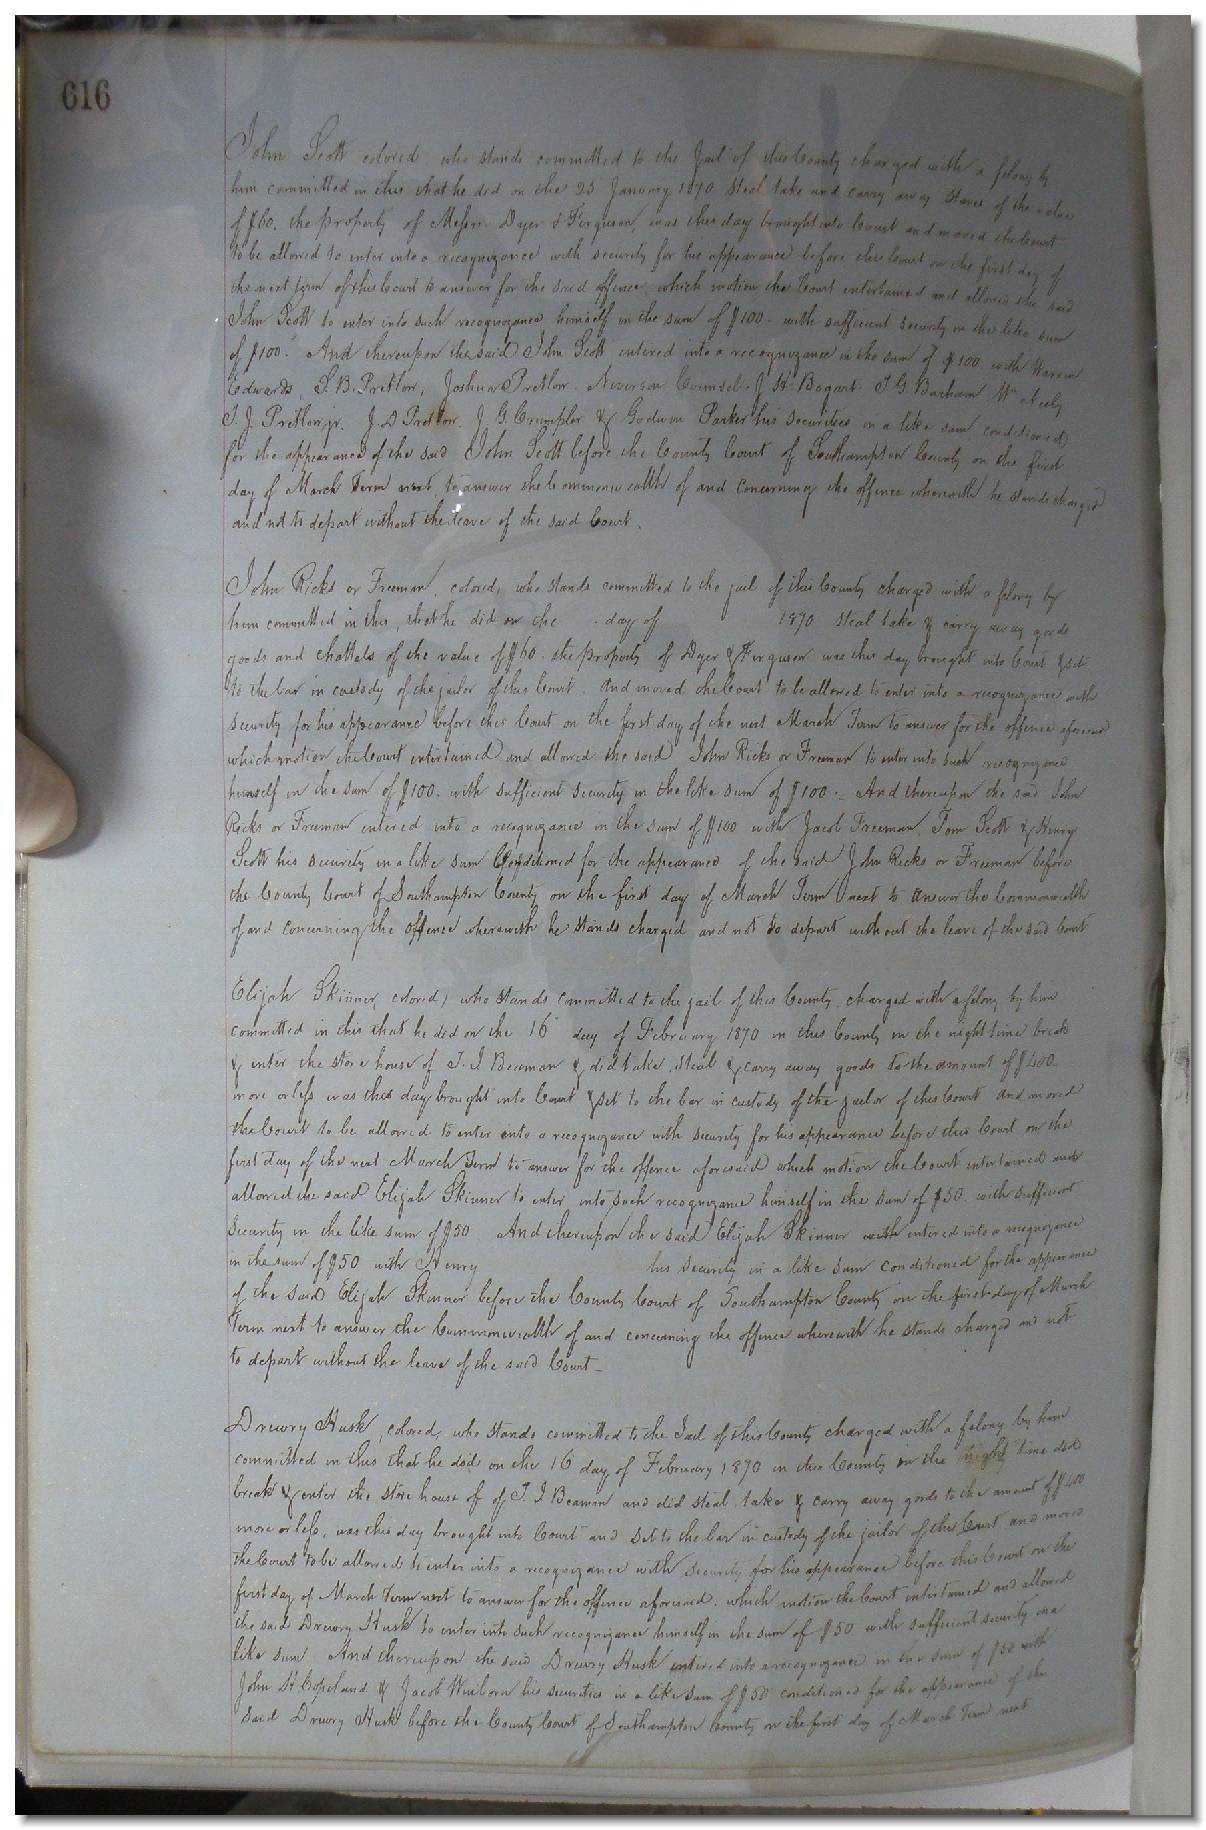 616
John Scott colored, who stands committed to the Jail of this County charged with a felony by
him committed in this that he did on the 25 January 1870 steal take and carry away staves of the value
of $60. the property of Messrs. Dyer & Ferguson, was this day brought into Court and moved the Court
to be allowed to enter into a recognizance with security for his appearance before this Court on the first day of
the next term of this Court to answer for the said offence, which motion the Court entertained and allowed the said
John Scott to enter into such recognizance himself in the sum of $100. with sufficient security in the like sum
of $100. And thereupon the said John Scott entered into a recognizance in the sum of $100 with
Edwards, S. B. Pretlow, Joshua Pretlow. Neverson Counsel. J. H. Bogart. T G Barham
T. J. Pretlow jr. J. D Pretlow. J. G. Crumpler & Godwin Parker his securities in a like sum conditioned
for the appearance of the said John Scott before the County Court of Southampton County on the first
day of March Term next, to answer the Commonwealth of and concerning the offence wherewith he stands charged
and not to depart without the leave of the said Court.
John Ricks or Freeman, colored, who stands committed to the jail of this County charged with a felony by
him committed in this, that he did on the day of 1870 steal take & carry away goods
goods and chattels of the value of $60. the property of Dyer & Ferguson was this day brought into Court & set
to the bar in custody of the jailor of this Court. And moved the Court to be allowed to enter into a recognizance with
security for his appearance before this Court on the first day of the next March Term to answer for the offence aforesaid
which motion the Court entertained and allowed the said John Ricks or Freeman to enter into such recognizance
himself in the sum of $100. with sufficient security in the like sum of $100. And thereupon the said John
Ricks or Freeman entered into a recognizance in the sum of $100 with Jacob Freeman, Tom Scott & Henry
Scott his security in a like sum Conditioned for the appearance of the said John Ricks or Freeman before
the County Court of Southampton County on the first day of March Term next to answer the Commonwealth
of and concerning the offence wherewith he stands charged and not to depart without the leave of the said Court
Elijah Skinner, colored, who stands committed to the jail of this County, charged with a felony by him
committed in this that he did on the 16 day of February 1870 in this County in the night time break
& enter the store house of T. J. Beaman & did take, steal & carry away goods to the amount of $400
more or less was this day brought into Court & set to the bar in custody of the jailor of this Court and moved
the Court to be allowed to enter into a recognizance with security for his appearance before this Court on the
first day of the next March Term to answer for the offence aforesaid which motion the Court entertained and
allowed the said Elijah Skinner to enter into such recognizance himself in the sum of $50 with sufficient
security in the like sum of $50. And thereupon the said Elijah Skinner with entered into a recognizance
in the sum of $50 with Henry his security in a like sum conditioned for the appearance
of the said Elijah Skinner before the County Court of Southampton County on the first day of March
Term next to answer the Commonwealth of and concerning the offence wherewith he stands charged and not
to depart without the leave of the said Court_
Drewry Husk, colored, who stands committed to the Jail of this County charged with a felony by him
committed in this that he did on the 16 day of February 1870 in this County in the night time did
break & enter the store house of of T. J Beaman and did steal, take & carry away goods to the amount of $400
more or less, was this day brought into Court and set to the bar in custody of the jailor of this Court and moved
the Court to be allowed to enter into a recognizance with security for his appearance before this Court on the
first day of March Term next to answer for the offence aforesaid. which motion the Court entertained and allowed
the said Drewry Husk to enter into such recognizance himself in the sum of $50 with sufficient security in a
like sum And thereupon the said Drewry Husk entered into a recognizance in the sum of $50 with
John H Copeland & Jacob Winborn his securities in a like sum of $50 conditioned for the appearance of the
said Drewry Husk before the County Court of Southampton County on the first day of March Term next